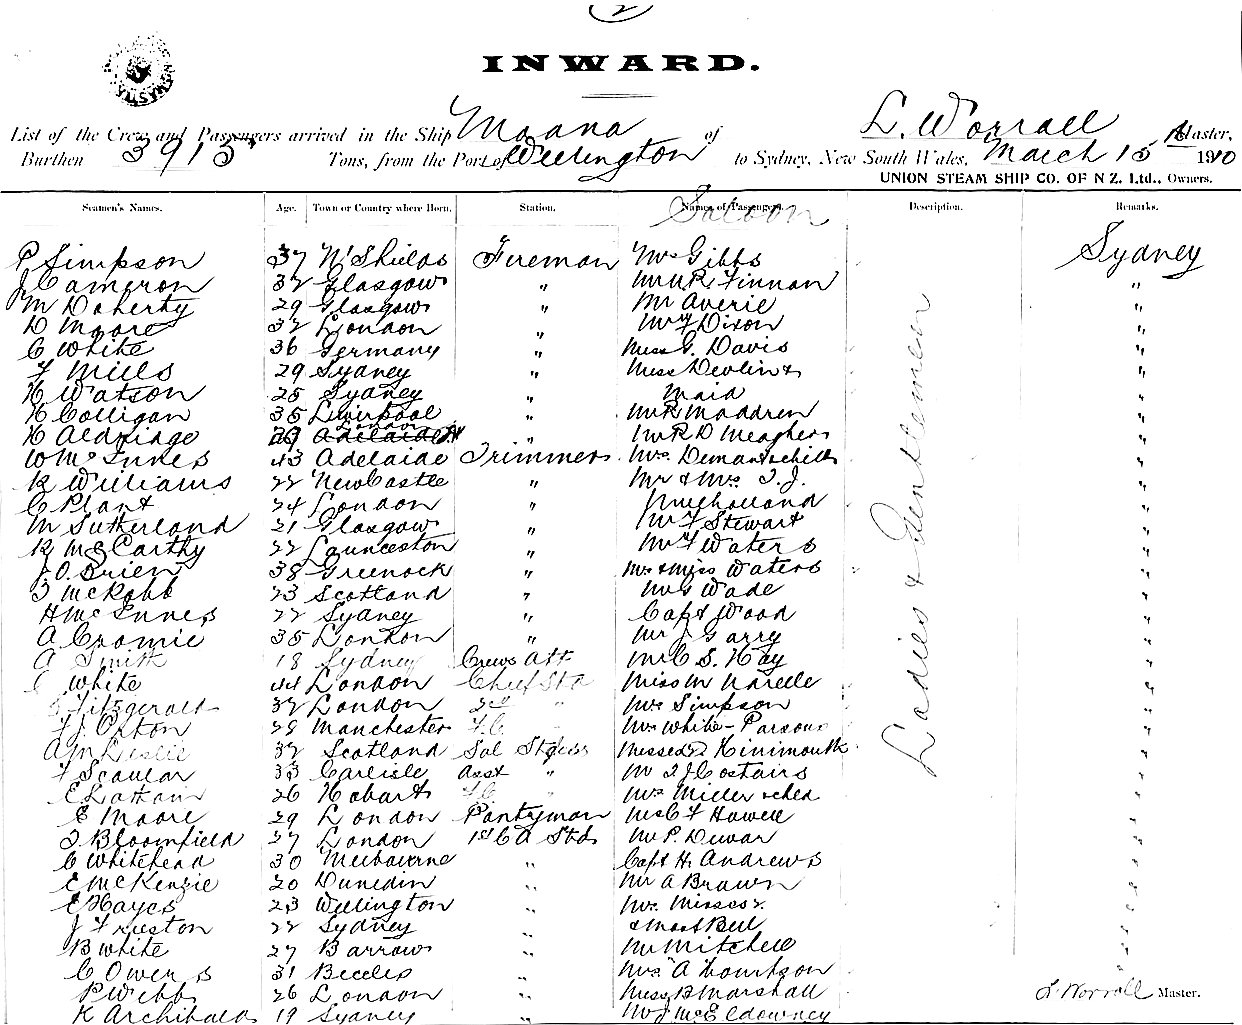 2
INWARD.
List of the Crew and Passengers arrived in the Ship Moana of L. Worrall Master,
Burthen 3915 Tons, from the Port of Wellington to Sydney, New South Wales, March 15th 1910
UNION STEAM SHIP CO. OF N Z. Ltd., Owners.
Seamen's Names. Age. Town or Country where Born. Station. Names of Passengers. Description. Remarks.
Saloon
P Simpson 37 N Shields Fireman Mrs Gibbs Sydney
J Cameron 32 Glasgow " Mr R Finnan "
M Doherty 29 Glasgow " Mr Averie "
D Moore 32 London " Mr F Dixon "
C White 36 Germany " Miss G. Davis "
F Mills 29 Sydney " Miss Devlin & "
H Watson 25 Sydney " Maid "
H Colligan 35 Liverpool " Mr R Maddren "
London
H Aldridge 29 Adelaide " Mr R D Meagher "
W McInnes 43 Adelaide Trimmer Mrs "
R Williams 22 NewCastle " Mr & Mrs T. J. "
C Plant 24 London " Mulholland "
M Sutherland 21 Glasgow " Mr F Stewart "
R McCarthy 22 Launceston " Mr F Waters "
J O.Brien 38 Greenock " Mrs & Miss Waters "
T McRobb 23 Scotland " Mrs Wade "
H McInnes 22 Sydney " Capt J Wood "
A Cromie 35 London " Mr J Garry "
A Smith 18 Sydney Crews Att Mr C S. Hay "
C White 44 London Chief Std Miss M Narelle "
Fitzgerald 32 London 2nd " Mrs Simpson "
F J. Orton 28 Manchester F.C. " Mrs White-Parsons "
A M Leslie 32 Scotland Sal Stdess Misses Hinimouth "
F Scoular 33 Carlisle Asst " Mr T J Costairs "
E Latham 26 Hobart F.C. " Mrs Miller & child "
E Moore 29 London Pantryman Mr C F Howell "
T Bloomfield 27 London 1st Cl Std Mr P. Dewar "
C Whitehead 30 Melbourne " Capt H. Andrews "
E McKenzie 20 Dunedin " Mr A Brawn "
E Hayes 23 Wellington " Mrs. Misses 2. "
J Frieston 22 Sydney " & Mast Bell "
B White 27 Barrow " Mr Mitchell "
C Owens 31 Beccles " Mrs A Thompson "
P Webb 26 London " Miss B Marshall
K Archibald 19 Sydney " Mr J McEldowney
Ladies & Gentlemen
L Worrall Master.